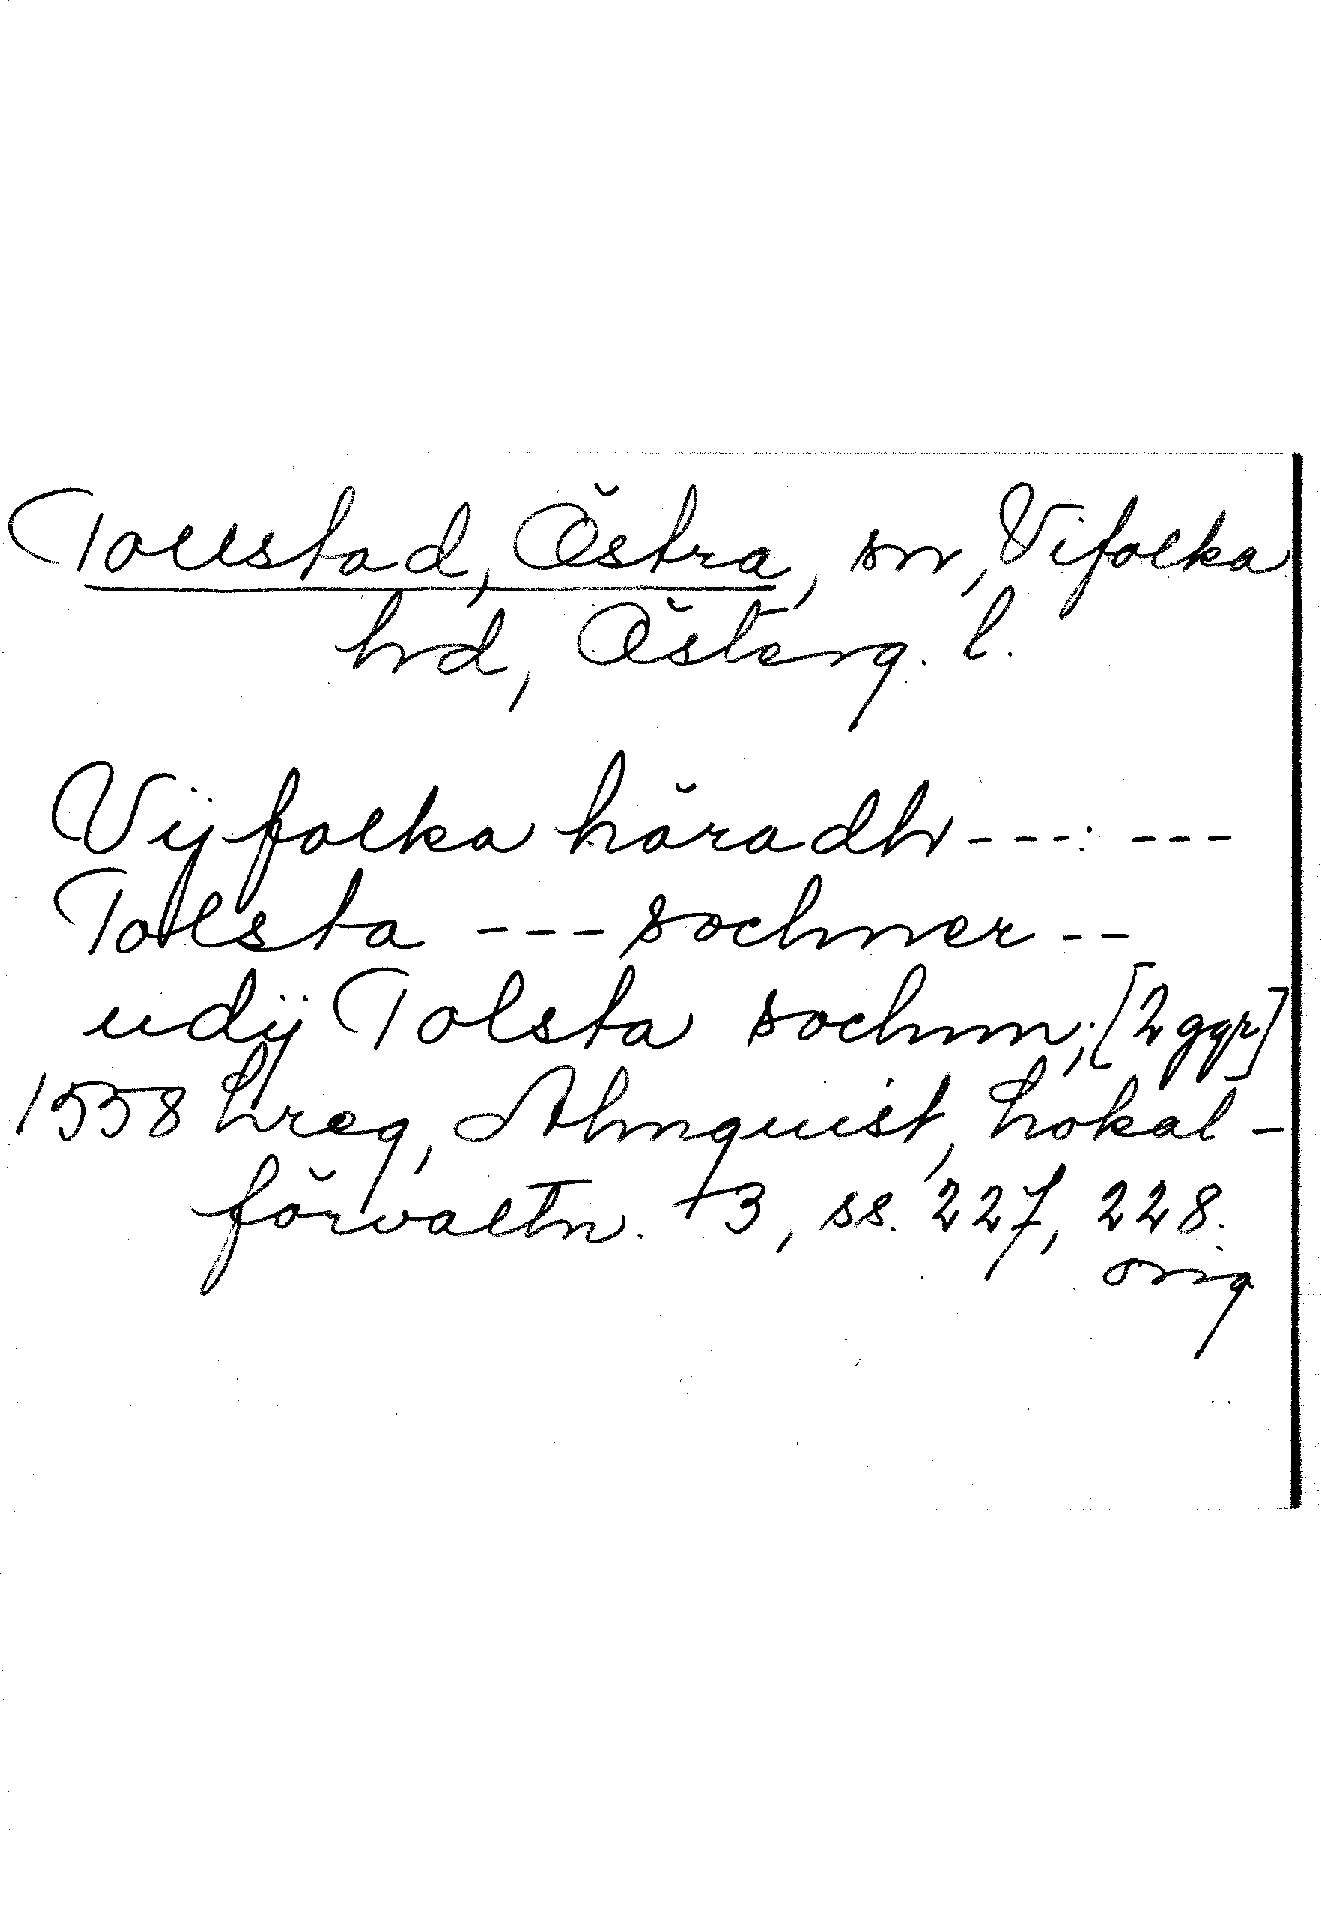 Tollstad, Östra, sn, Vifolka
hd, Österg. l.
Vijfolka häradh --- : ---
Tolsta --- sochner --
udij Tolsta sochnn; [2 ggr]
1558 Lreg, Almquist, Lokal-
förvaltn. †3, ss. 227, 228.
orig